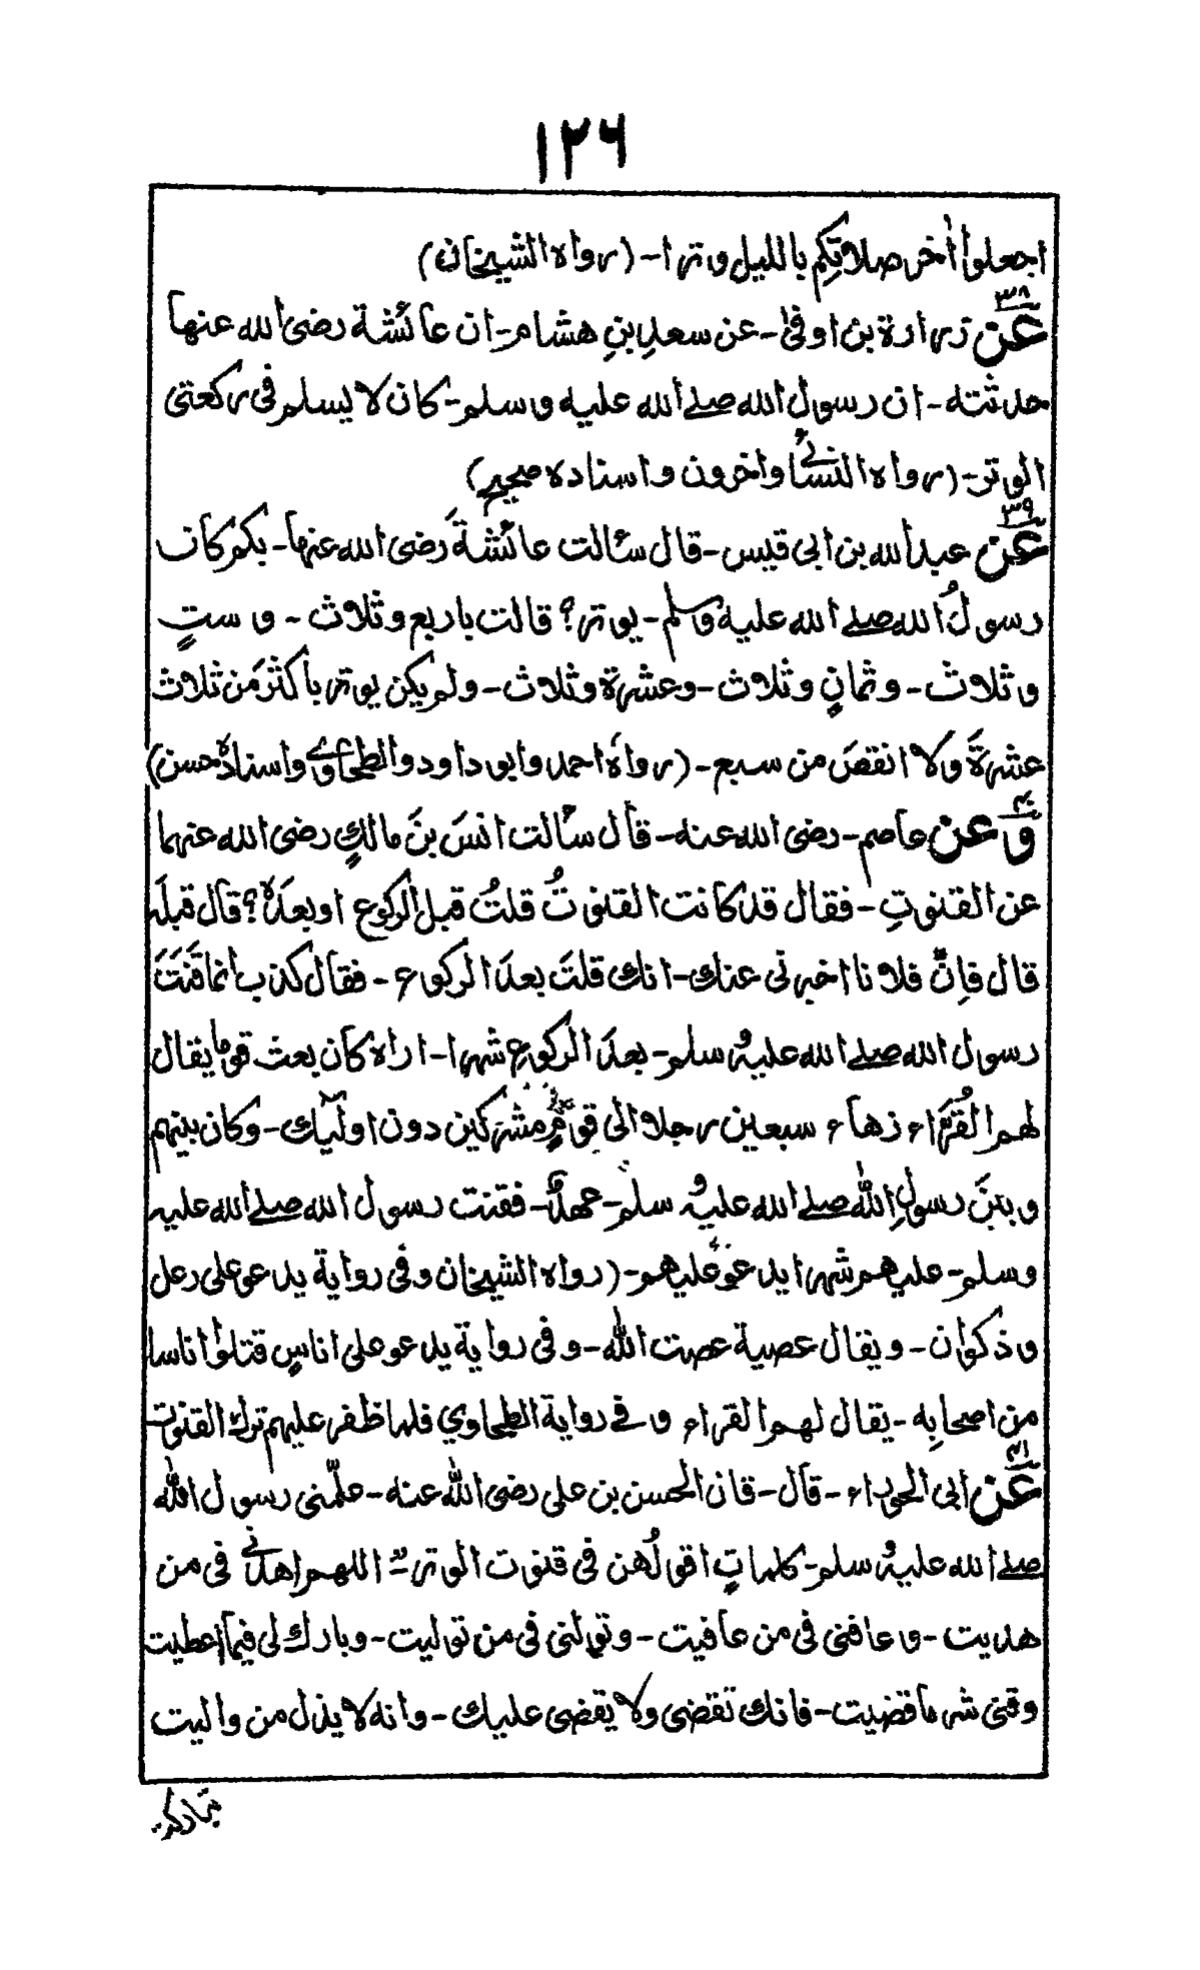 ١٢٦
اجعلوا اٰخر صلاتكم بالليل وترا - (رواه الشيخان)
٣٨
عن زرارة بن اوفىٰ - عن سعدِ بنِ هشام - ان عائشة رضى الله عنها
حدثته - ان رسول الله صلے الله عليه وسلم - كان لا يسلم فى ركعتى
الوتر - (رواه النسائے واخرون واسناده صحيح)
٣٩
عن عبد الله بن ابى قيس - قال سئالت عائشةَ رضى الله عنها - بكم كان
رسولُ الله صلے الله عليه وسلم - يوتر؟ قالت باربع وثلاث - و ستٍ
وثلاث - وثمانٍ وثلاث - وعشرة وثلاث - ولم يكن يوتر باكثرَ من ثلاث
عشرةَ ولا انقصَ من سبع - (رواه احمد وابو داود والطحاوے واسناده حسن)
٤٠
وعن عاصم - رضى الله عنه - قال سألت انسَ بنَ مالكٍ رضى الله عنهما
عن القنوتِ - فقال قد كانت القنوتُ قلتُ قبل الركوع او بعدَه؟ قال قبلَه
قال فاِنّ فلانا اخبرنى عنك - انك قلتَ بعدَ الركوع - فقال كذب انما قَنَتَ
رسول الله صلے الله عليه و سلم - بعدَ الركوع شهرا - اراه كان بعث قوما يقال
لهم القُرّاء زهاء سبعين رجلا الى قومٍ مشركين دون اولٓيك - وكان بينهم
وبينَ رسولِ الله صلے الله عليه و سلم - عهدٌ - فقنت رسول الله صلے الله عليه
وسلم - عليهم شهرا يدعو عليهم - (رواه الشيخان وفى رواية يدعو على رعل
وذكوان - ويقال عصية عصت الله - وفى رواية يدعو على اناسٍ قتلوا اناسا
من اصحابِه - يقال لهم القراء وفے رواية الطحاوي فلما ظفر عليهم ترك القنوت
٤١
عن ابى الحوراء - قال - قان الحسن بن على رضى الله عنه - علّمنى رسول الله
صلے الله عليه و سلم - كلماتٍ اقولُهن فى قنوت الوتر - اللهم اهدنے فى من
هديت - وعافنى فى من عافيت - وتولنى فى من توليت - وبارك لى فيما اعطيت
وقنى شر ما قضيت - فانك تقضى ولا يقضى عليك - وانه لا يذل من واليت